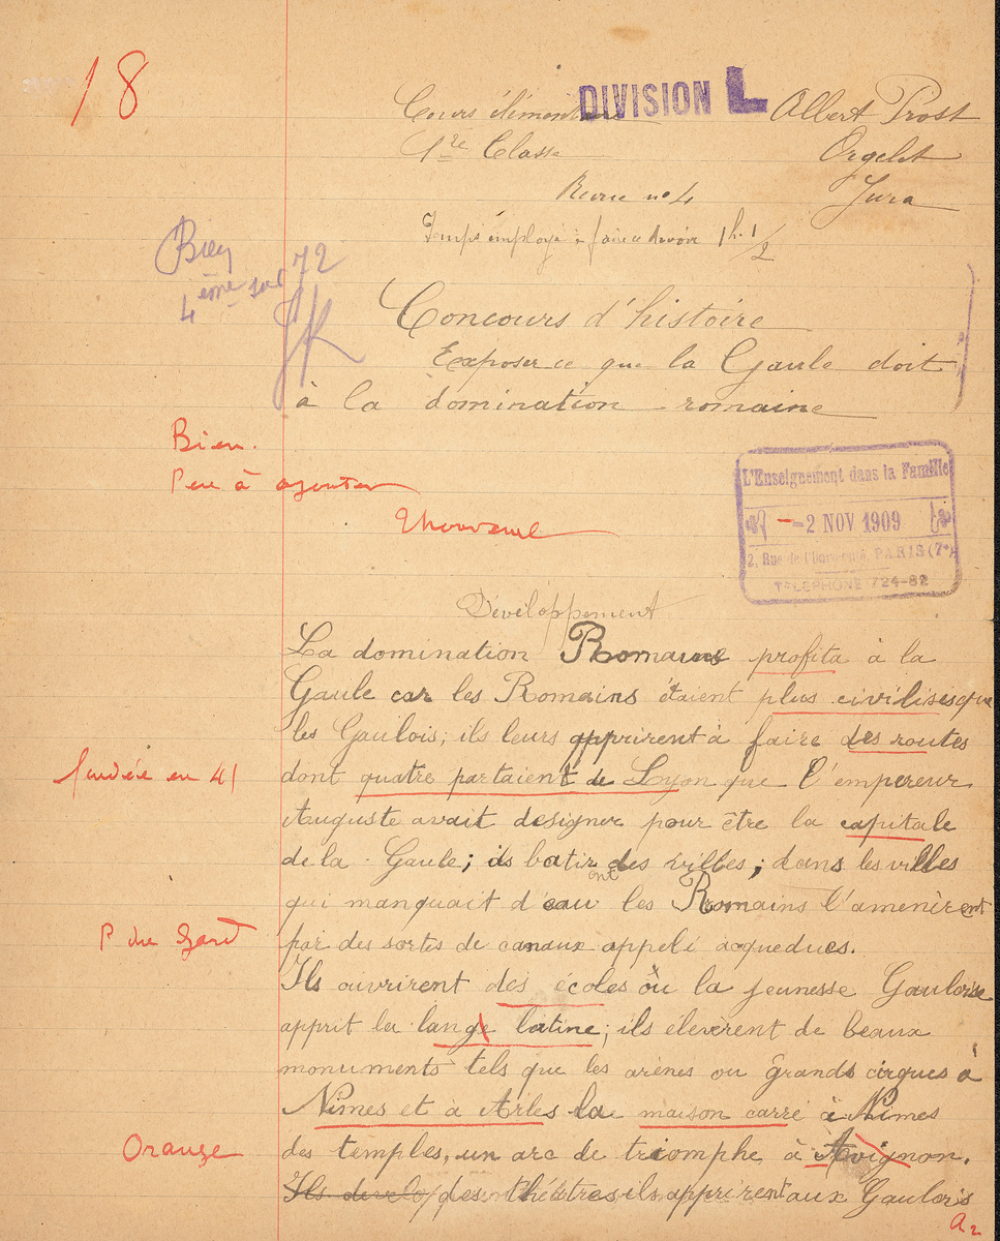 18
DIVISION L
Cours élémentaire Albert Prost
1re Classe Orgelet
Revue no 4 Jura
Temps employé à faire ce devoir 1h 1/2
Bien
4eme sur 72
Concours d'histoire
Exposer ce que la Gaule doit
à la domination romaine
Bien.
Peu à ajouter
L'Enseignement dans la Famille
- 2 NOV 1909
2, Rue de l'Université, PARIS (7e)
TÉLÉPHONE 724-82
Développement
La domination Romaine profita à la
Gaule car les Romains étaient plus civilisés que
les Gaulois; ils leurs apprirent à faire des routes
fondée en 41
dont quatre partaient de Lyon que l'empereur
Auguste avait designer pour être la capitale
de la Gaule; ils batirent des villes; dans les villes
qui manquait d'eau les Romains l'amenèrent
P du Gard
par des sortes de canaux appelé acqueducs.
Ils ouvrirent des écoles où la jeunesse Gauloise
apprit la lange latine; ils élevèrent de beaux
monuments tels que les arènes ou grands cirques à
Nimes et à Arles la maison carré à Nimes
Orange
des temples, un arc de triomphe à Avignon.
Ils develop des théâtres ils apprirent aux Gaulois